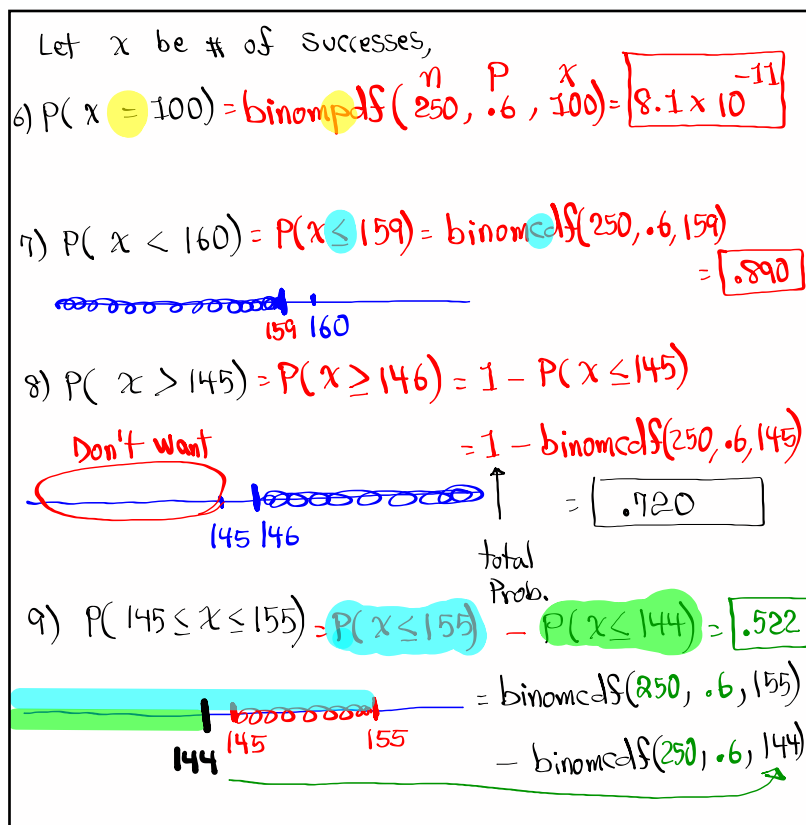 Let x be # of successes,
n P x
6) P( x = 100) = binompdf( 250, .6 , 100) = 8.1 x 10^-11
7) P( x < 160) = P(x ≤ 159) = binomcdf(250, .6, 159)
= .890
159 160
8) P( x > 145) = P(x ≥ 146) = 1 - P( x ≤ 145)
Don't want
= 1 - binomcdf(250, .6, 145)
= .720
145 146
total
Prob.
9) P( 145 ≤ x ≤ 155) = P( x ≤ 155) - P( x ≤ 144) = .522
= binomcdf(250, .6, 155)
144 145 155
- binomcdf(250, .6, 144)